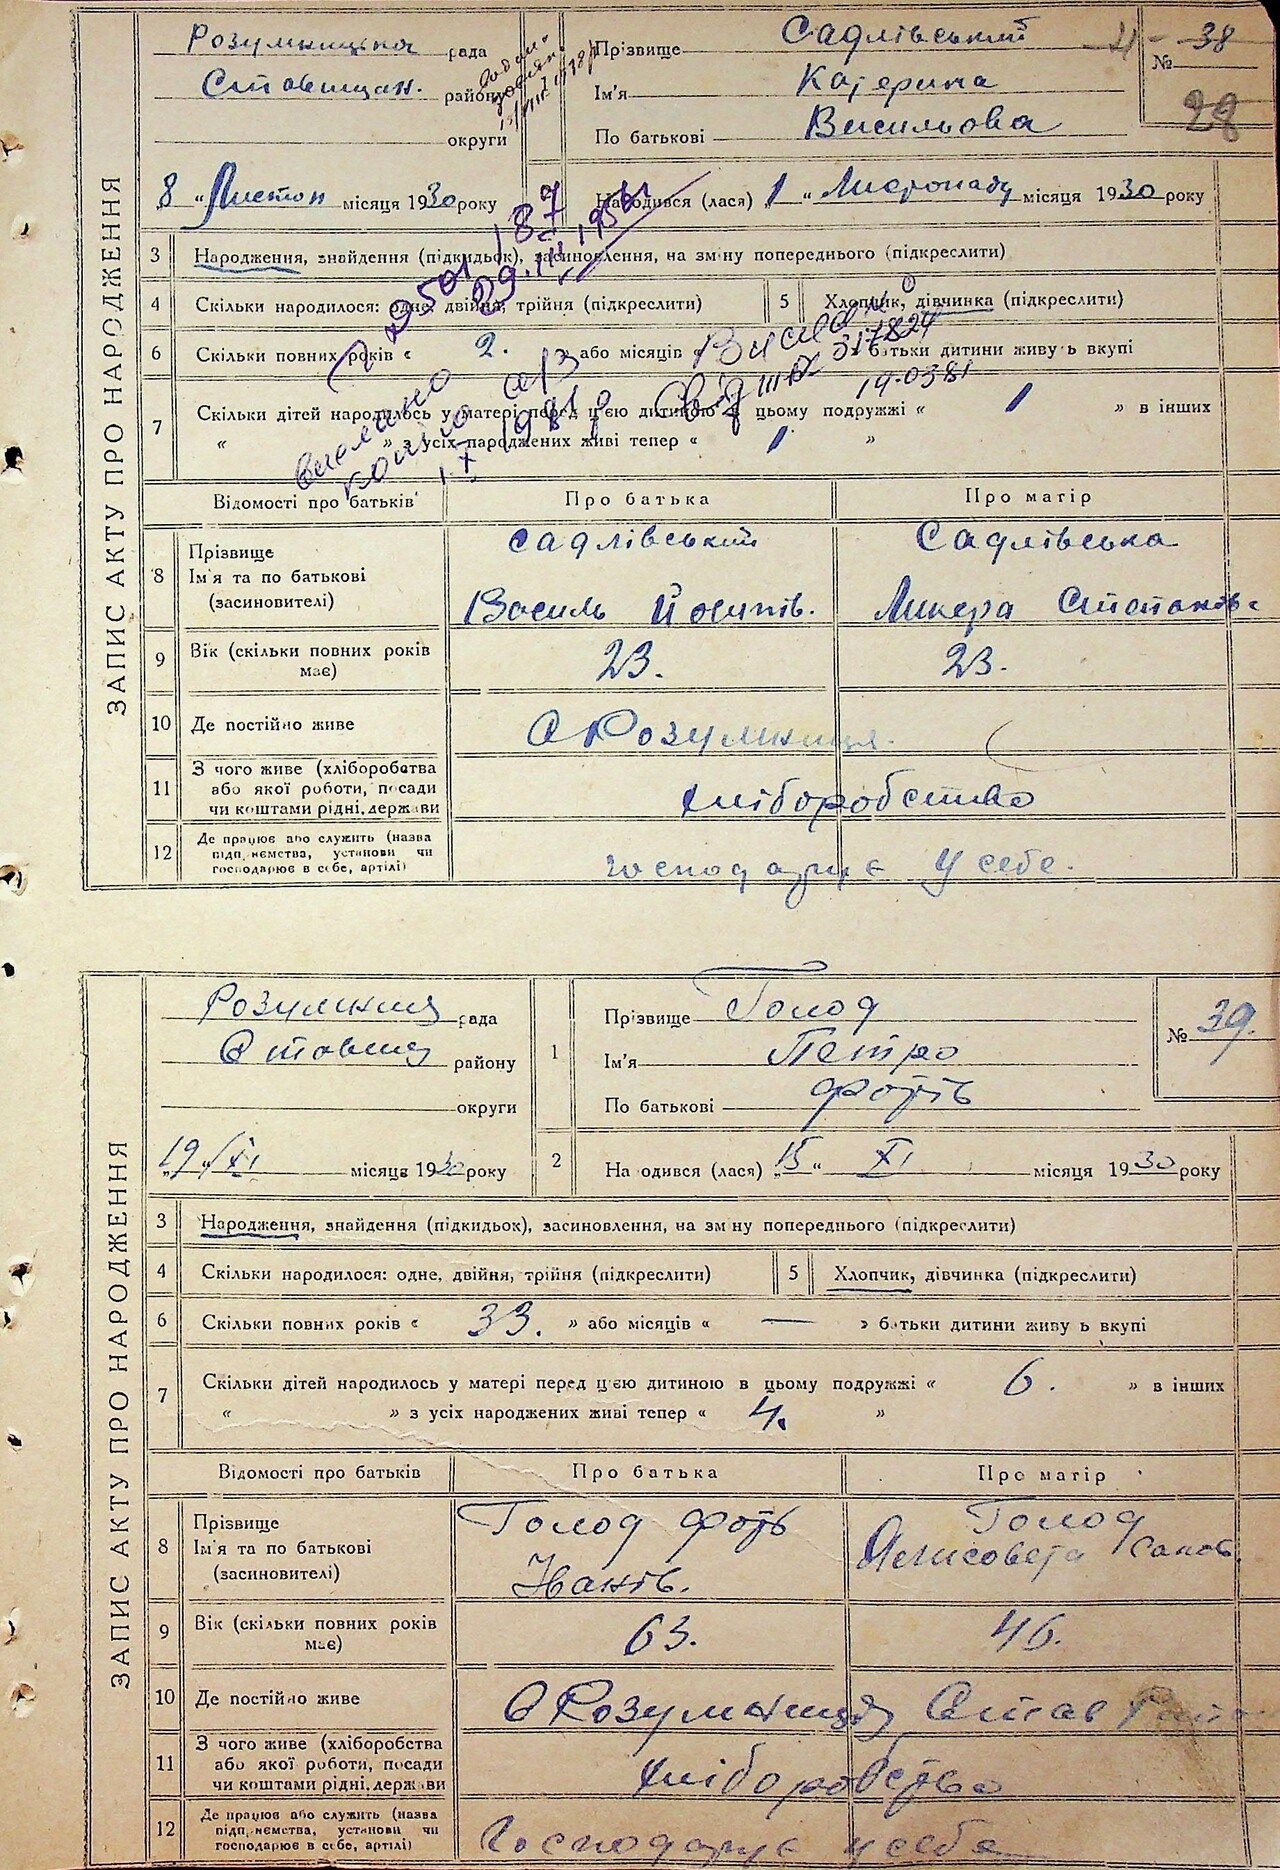 ЗАПИС АКТУ ПРО НАРОДЖЕННЯ
Розумницька рада
Ставищан. району
округи
Прізвище Садлівський
Ім'я Катерина
По батькові Васильова
№ 38
28
8 „ Листоп місяця 1930 року
Народився (лася) „ 1 “ Листопаду місяця 1930 року
187
29.III.1956
3 Народження, знайдення (підкидьок), засиновлення, на зміну попереднього (підкреслити)
4 Скільки народилося: одне, двійня, трійня (підкреслити)
5 Хлопчик, дівчинка (підкреслити)
6 Скільки повних років « 2. » або місяців « » батьки дитини живуть вкупі
317824
19.0381
7 Скільки дітей народилось у матері перед цією дитиною в цьому подружжі « 1 » в інших
« » з усіх народжених живі тепер « 1 »
Відомості про батьків
Про батька
Про матір
8 Прізвище
Ім'я та по батькові
(засиновителі)
Садлівський
Василь Йосипів.
Садлівська
Ликера Степанівс
9 Вік (скільки повних років має)
23.
23.
10 Де постійно живе
С Розумниця.
11 З чого живе (хліборобства
або якої роботи, посади
чи коштами рідні, держави
хліборобство
12 Де працює або служить (назва
підприємства, установи чи
господарює в себе, артілі)
господарує у себе.
ЗАПИС АКТУ ПРО НАРОДЖЕННЯ
Розумниц рада
Ставищ району
округи
1
Прізвище Голод
Ім'я Петро
По батькові Фотів
№ 39.
„19“ XI місяця 1930 року
2 Народився (лася) „15“ XI місяця 1930 року
3 Народження, знайдення (підкидьок), засиновлення, на зміну попереднього (підкреслити)
4 Скільки народилося: одне, двійня, трійня (підкреслити)
5 Хлопчик, дівчинка (підкреслити)
6 Скільки повних років « 33. » або місяців « — » батьки дитини живуть вкупі
7 Скільки дітей народилось у матері перед цією дитиною в цьому подружжі « 6. » в інших
« » з усіх народжених живі тепер « 4. »
Відомості про батьків
Про батька
Про матір
8 Прізвище
Ім'я та по батькові
(засиновителі)
Голод Фоть
Іванів.
Голод
9 Вік (скільки повних років має)
63.
46.
10 Де постійно живе
С Розумниця, Став
11 З чого живе (хліборобства
або якої роботи, посади
чи коштами рідні, держави
хліборобство
12 Де працює або служить (назва
підприємства, установи чи
господарює в себе, артілі)
Господарує у себе